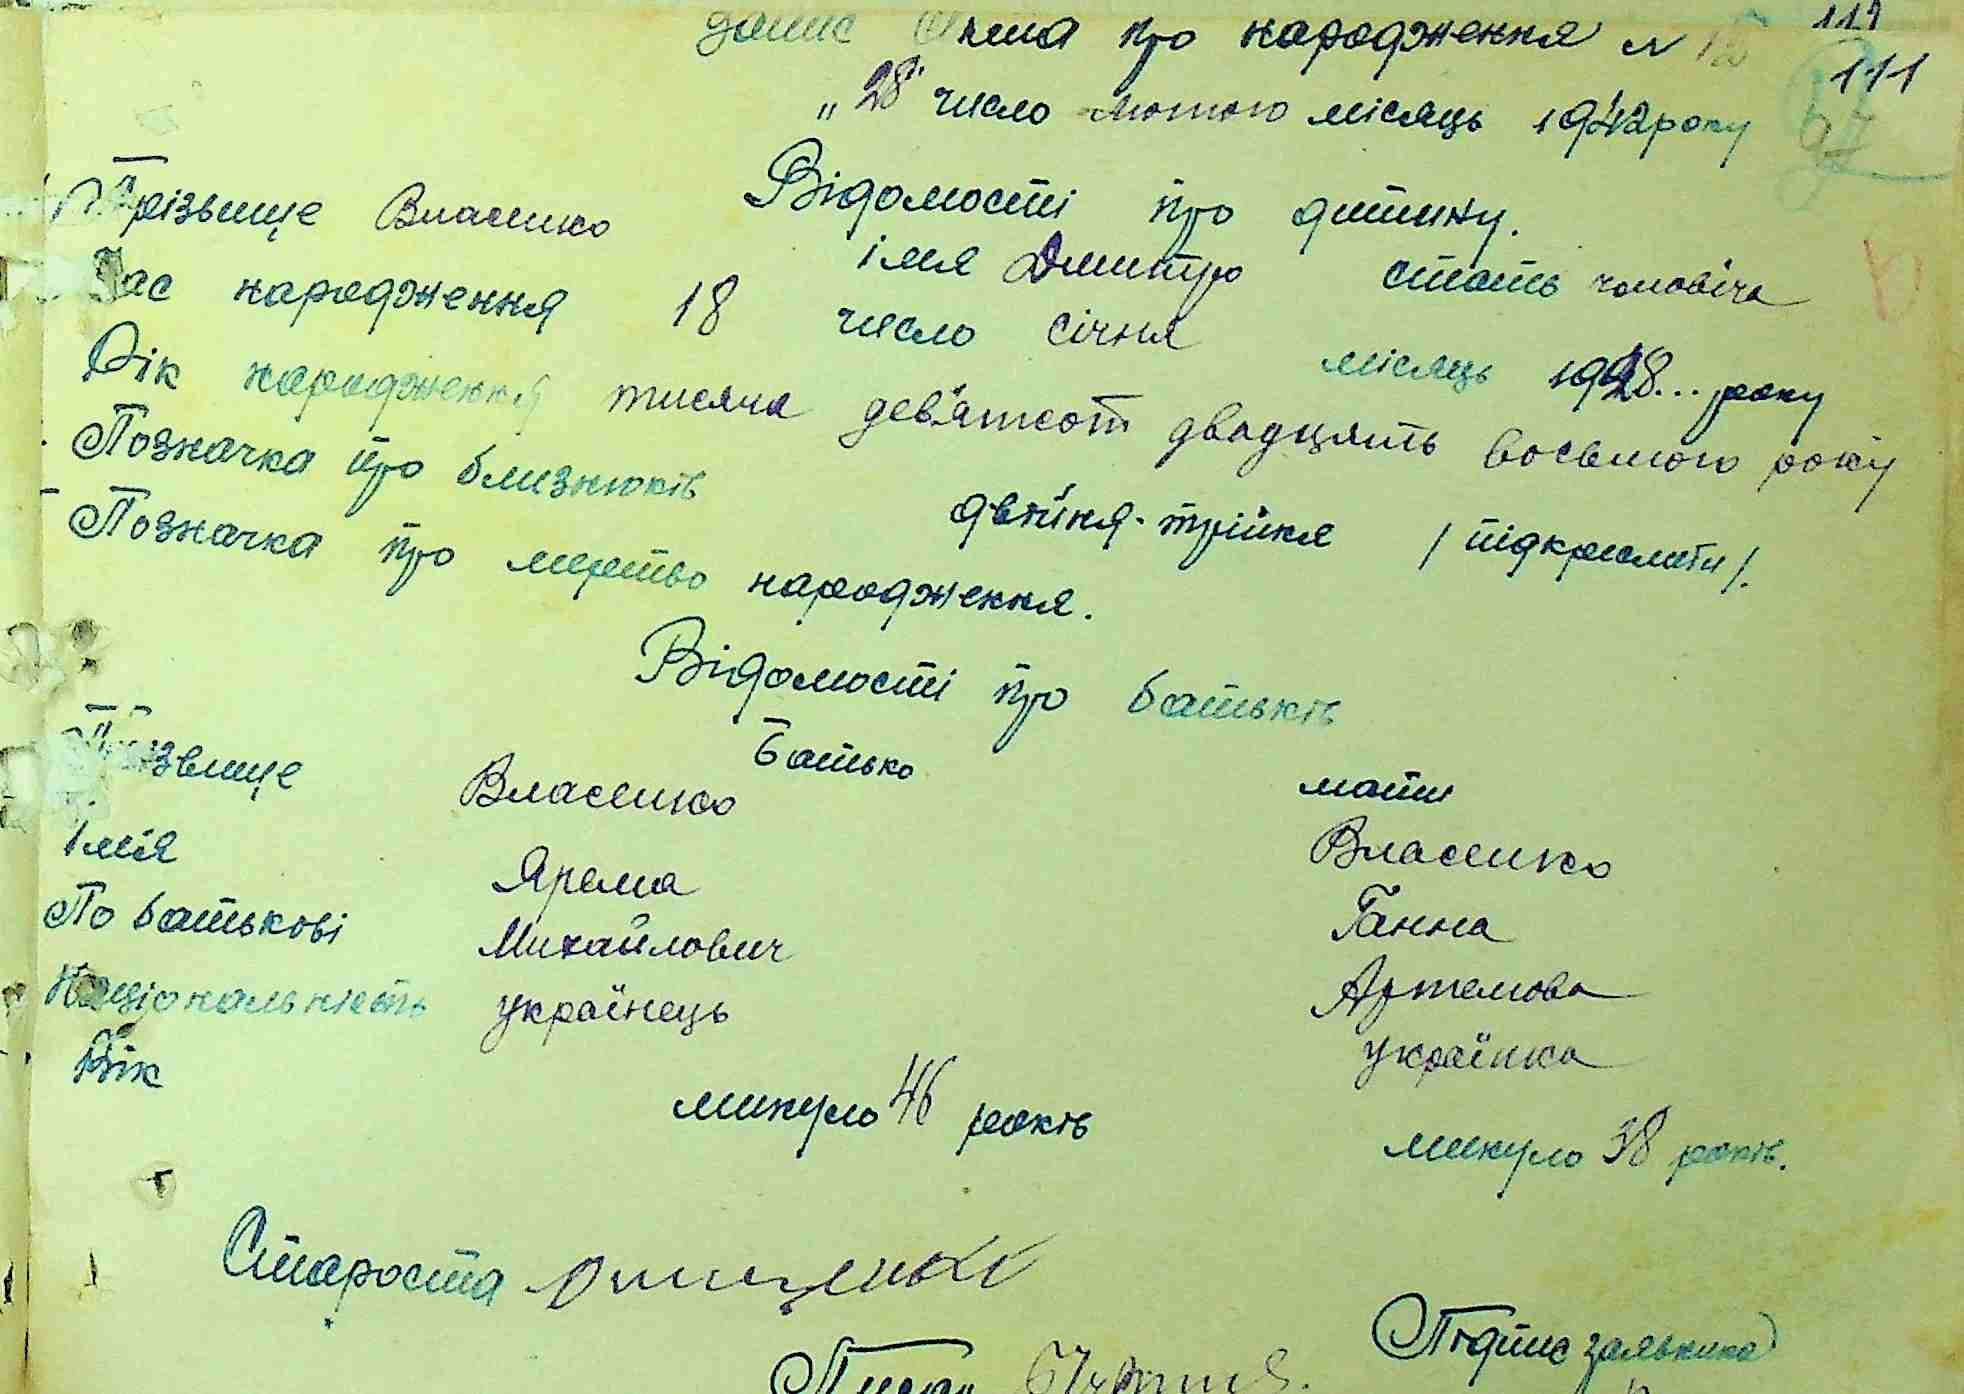 119
запис акта про народження N
111
„28" число лютого місяць 1942 року
67
Відомості про дитину.
Прізвище Власенко імя Дмитро стать чоловіча
Час народження 18 число січня місяць 1928... року
Рік народження тисяча дев'ятсот двадцять восьмого року
Позначка про близнюків двійня-трійня /підкреслити/.
Позначка про мертво народження.
Відомості про батьків
Батько мати
Прізвище Власенко Власенко
Імя Ярема Ганна
По батькові Михайлович Артемова
Національність українець українка
Вік минуло 46 років минуло 38 років.
Староста
Підпис заявника